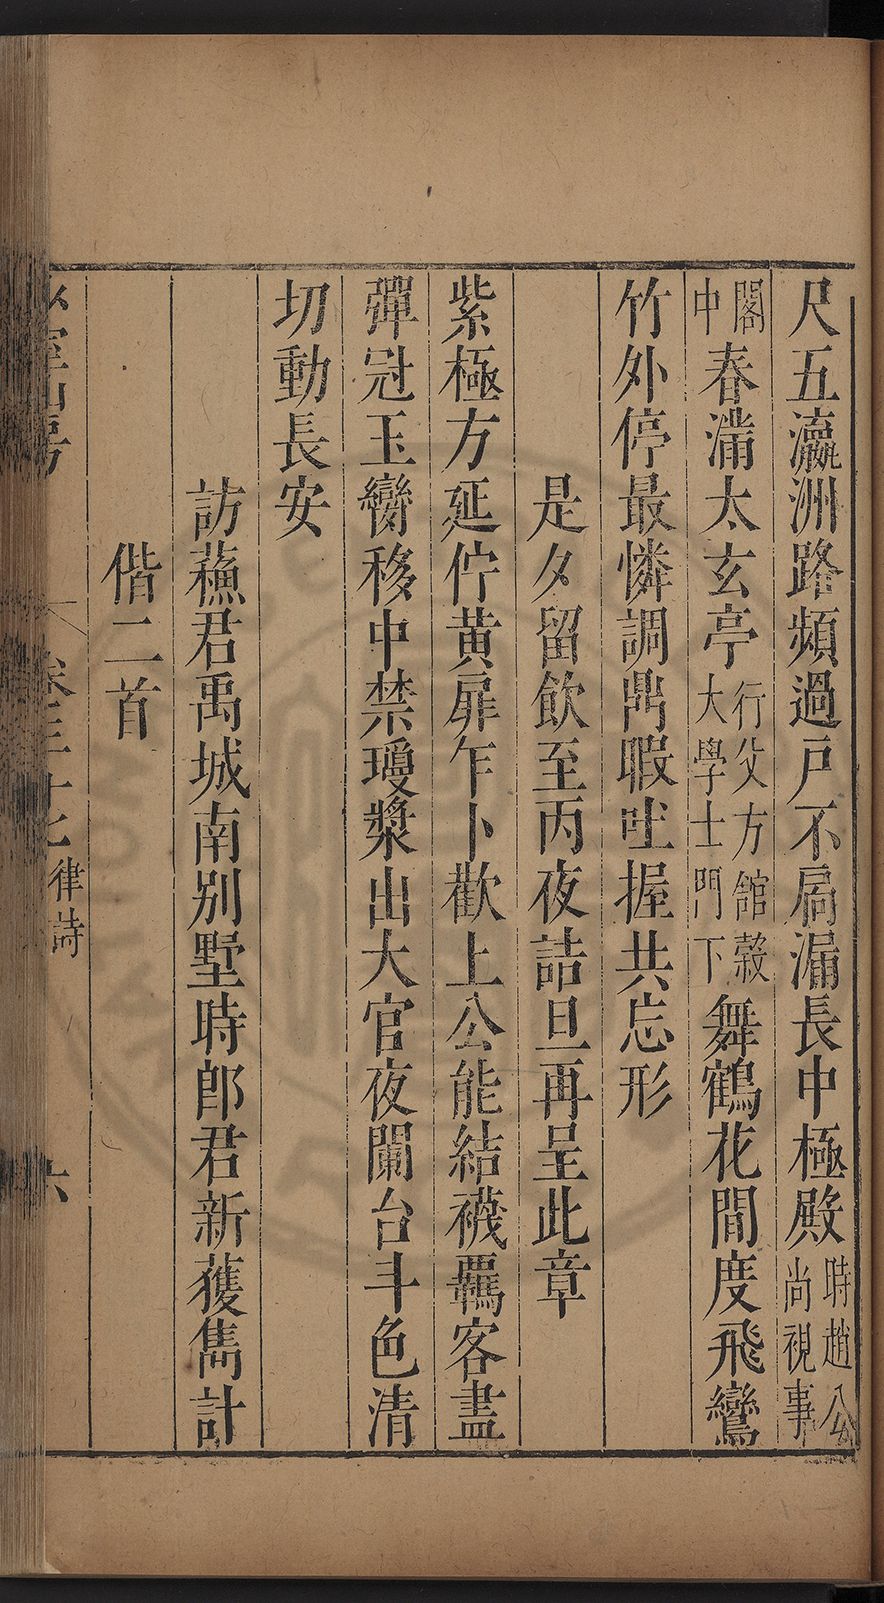 尺五瀛洲路頻過戸不扃漏長中極殿時趙公尚視事
閣中春滿太玄亭行父方館穀大學士門下舞鶴花間度飛鸞
竹外停最憐調鼎暇吐握共忘形
是夕留飲至丙夜詰旦再呈此章
紫極方延佇黄扉乍卜歡上公能結襪羈客盡
彈冠玉䜌移中禁瓊漿出大官夜闌台斗色清
切動長安
訪蘓君禹城南别墅時郎君新獲雋計
偕二首
山房
卷三十七 律詩
六